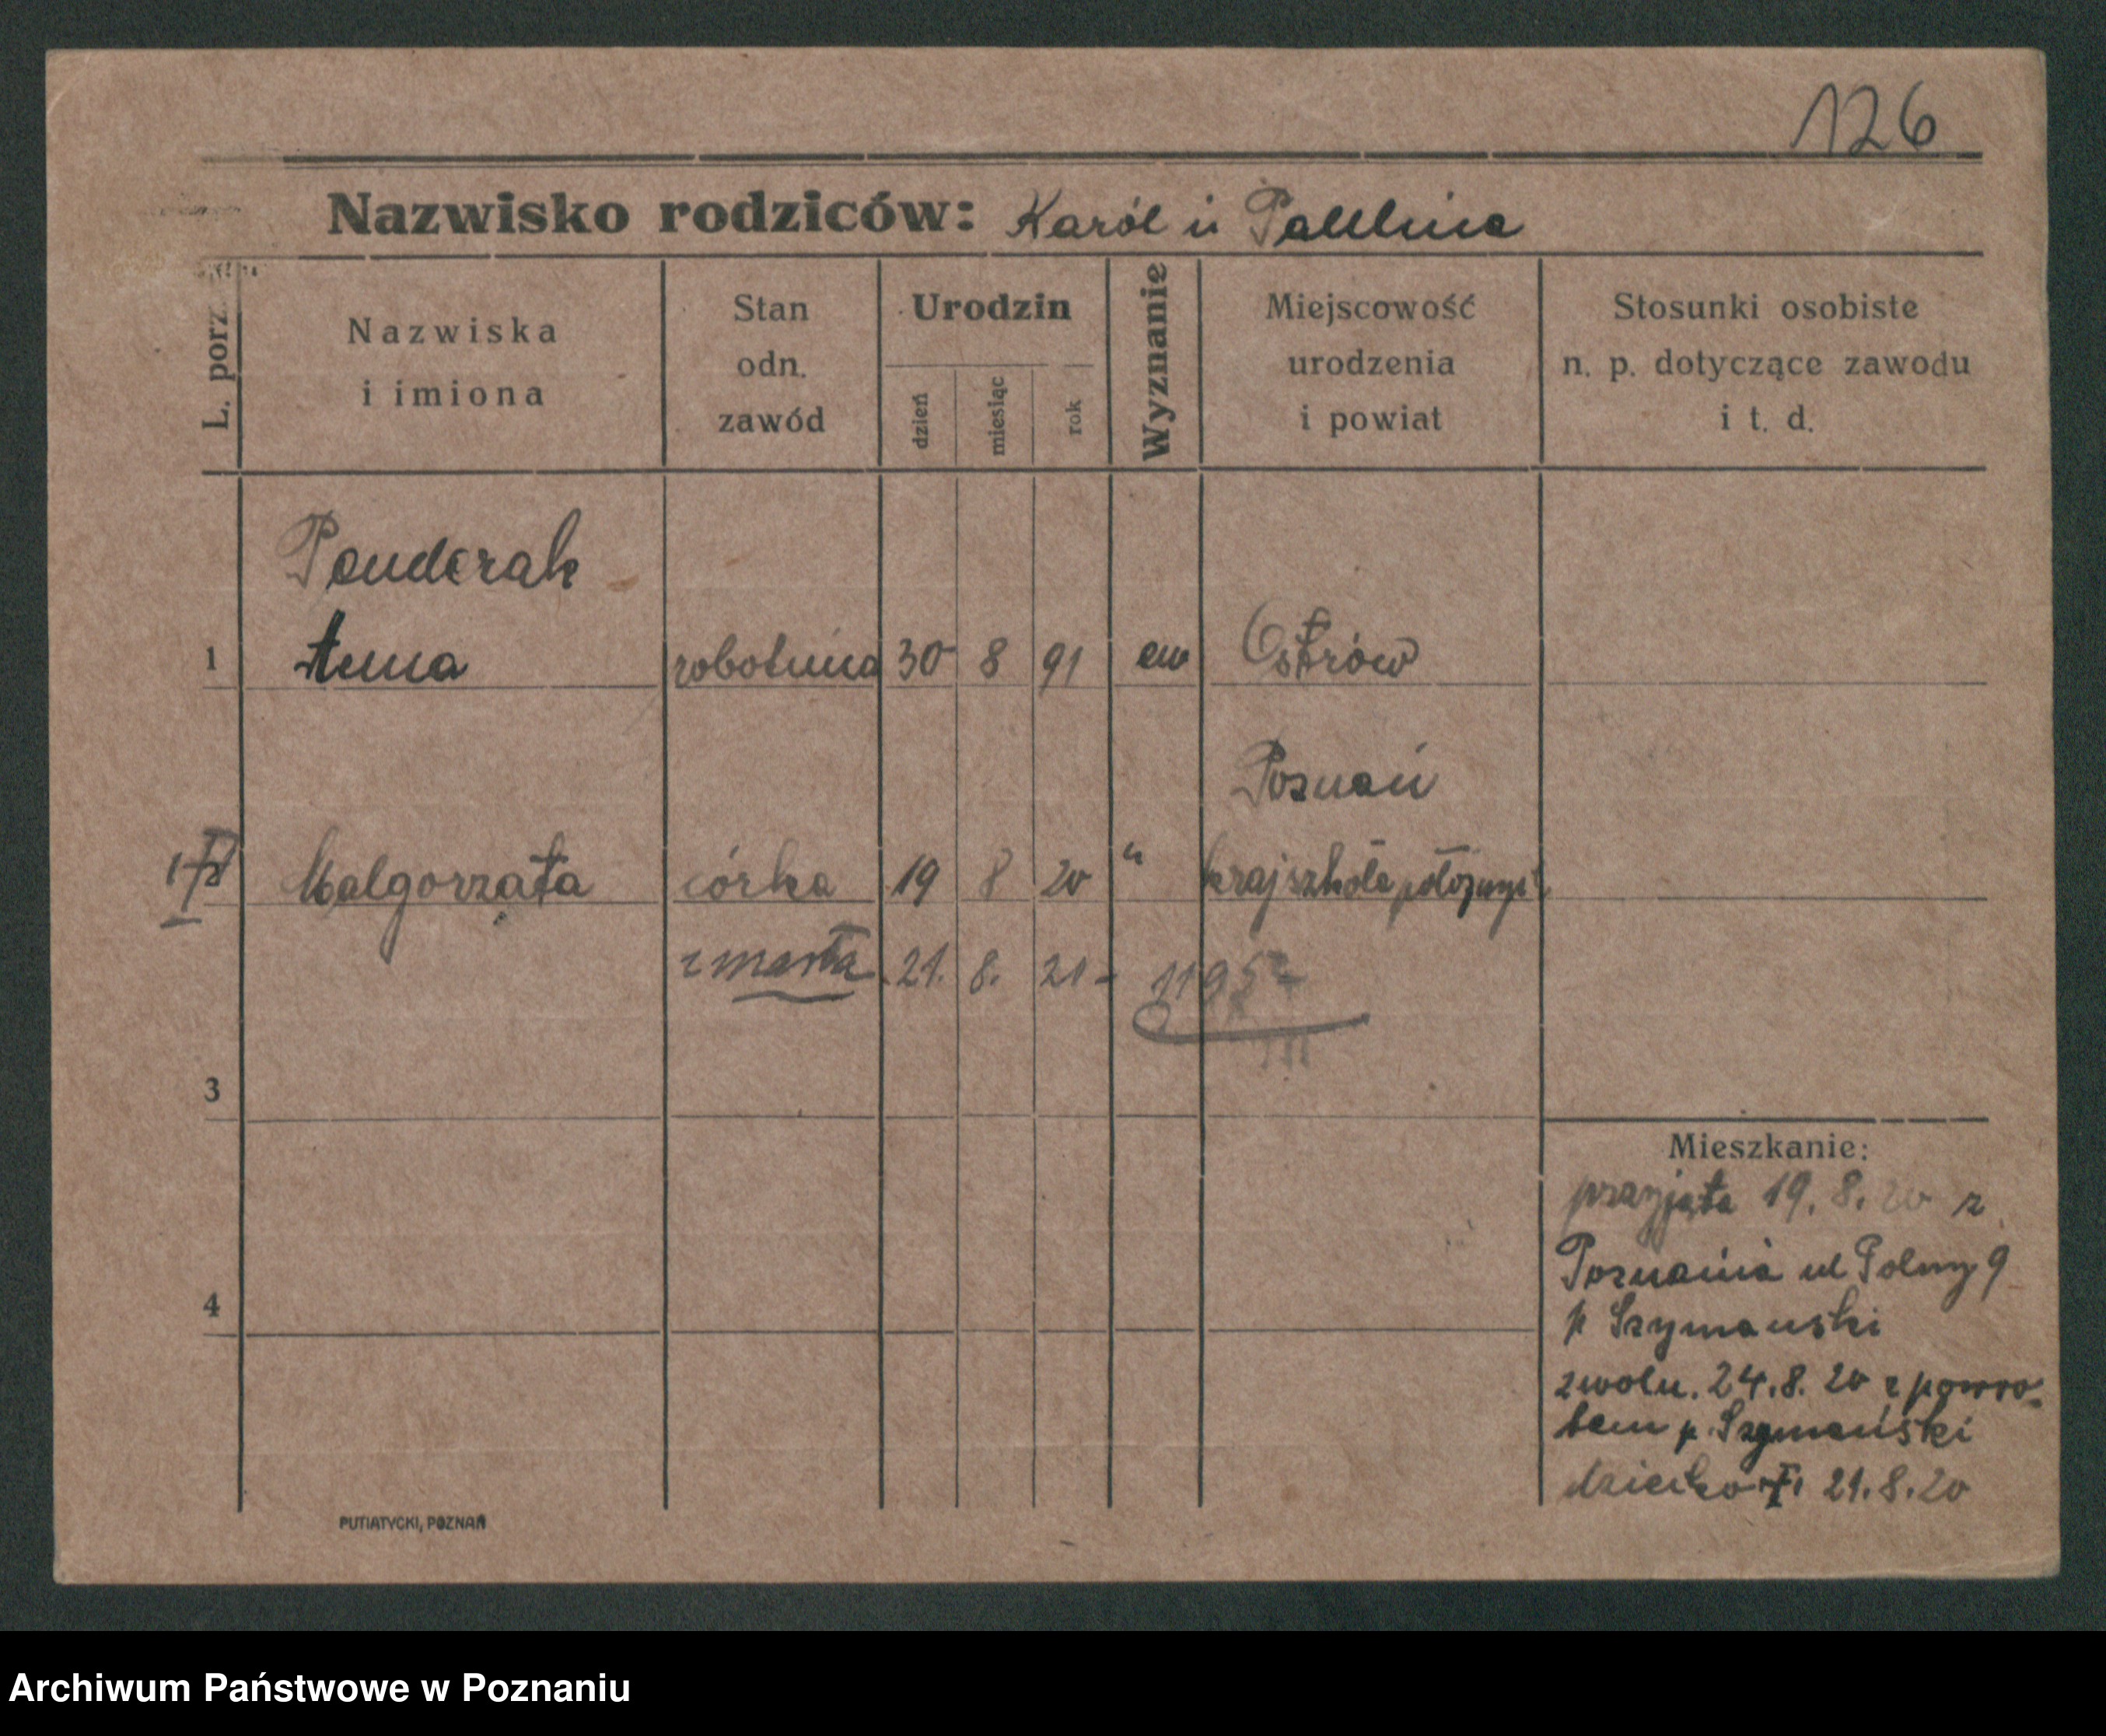 126
Nazwisko rodziców: Karól u Paulina
L. porz.
Nazwiska
i imiona
Stan
odn.
zawód
Urodzin
dzień
miesiąc
rok
Wyznanie
Miejscowość
urodzenia
i powiat
Stosunki osobiste
n. p. dotyczące zawodu
i t. d.
Ponderak
1 Anna robotnica 30 8 91 ew Ostrów
Poznań
Malgorzata córka 19 8 20 " kraj szkoła
zmarła 21. 8. 21 -
3
4
Mieszkanie:
przyjęta 19. 8. 20 z
Poznania ul Polny 9
p Szymanski
zwoln. 24. 8. 20 z powro-
tem p. Szymański
dziecko † 21. 8. 20
PUTIATYCKI, POZNAŃ
Archiwum Państwowe w Poznaniu